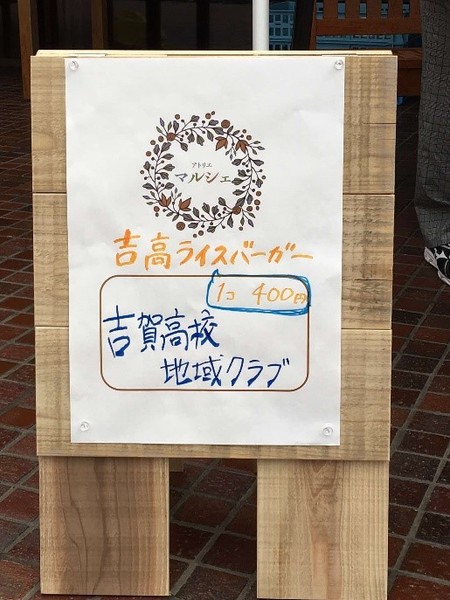 アトリエ
マルシェ
吉高ライスバーガー
1コ 400円
吉賀高校
地域クラブ